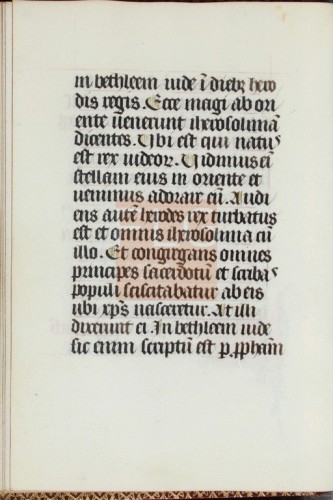 in bethleem iude ī dieb; hero
dis regis. Ecce magi ab ori
ente uenerunt iherosolimā
dicentes. Ubi est qui natꝰ
est rex iudeoꝝ. Uidimus eī
stellam eius in oriente et
uenimus adorare eū. Audi
ens autē herodes rex turbatus
est et omnis iherosolima cū
illo. Et congregans omnes
principes sacerdotū et scribaˢ
populi sciscitabatur ab eis
ubi xp̄s nasceretur. At illi
dixerunt ei. In bethleem iude
sic enim scriptū est p. pphām